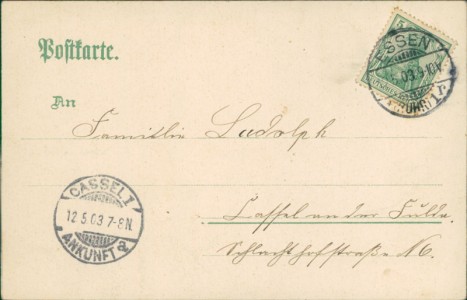 Postkarte.
ESSEN
.5.03.9-10V
(RUHR) 1
An
Familie Ludolph
CASSEL 1
12.5.03 7-8N.
ANKUNFT
Cassel an der Fulda
Schlachthofstraße 16.